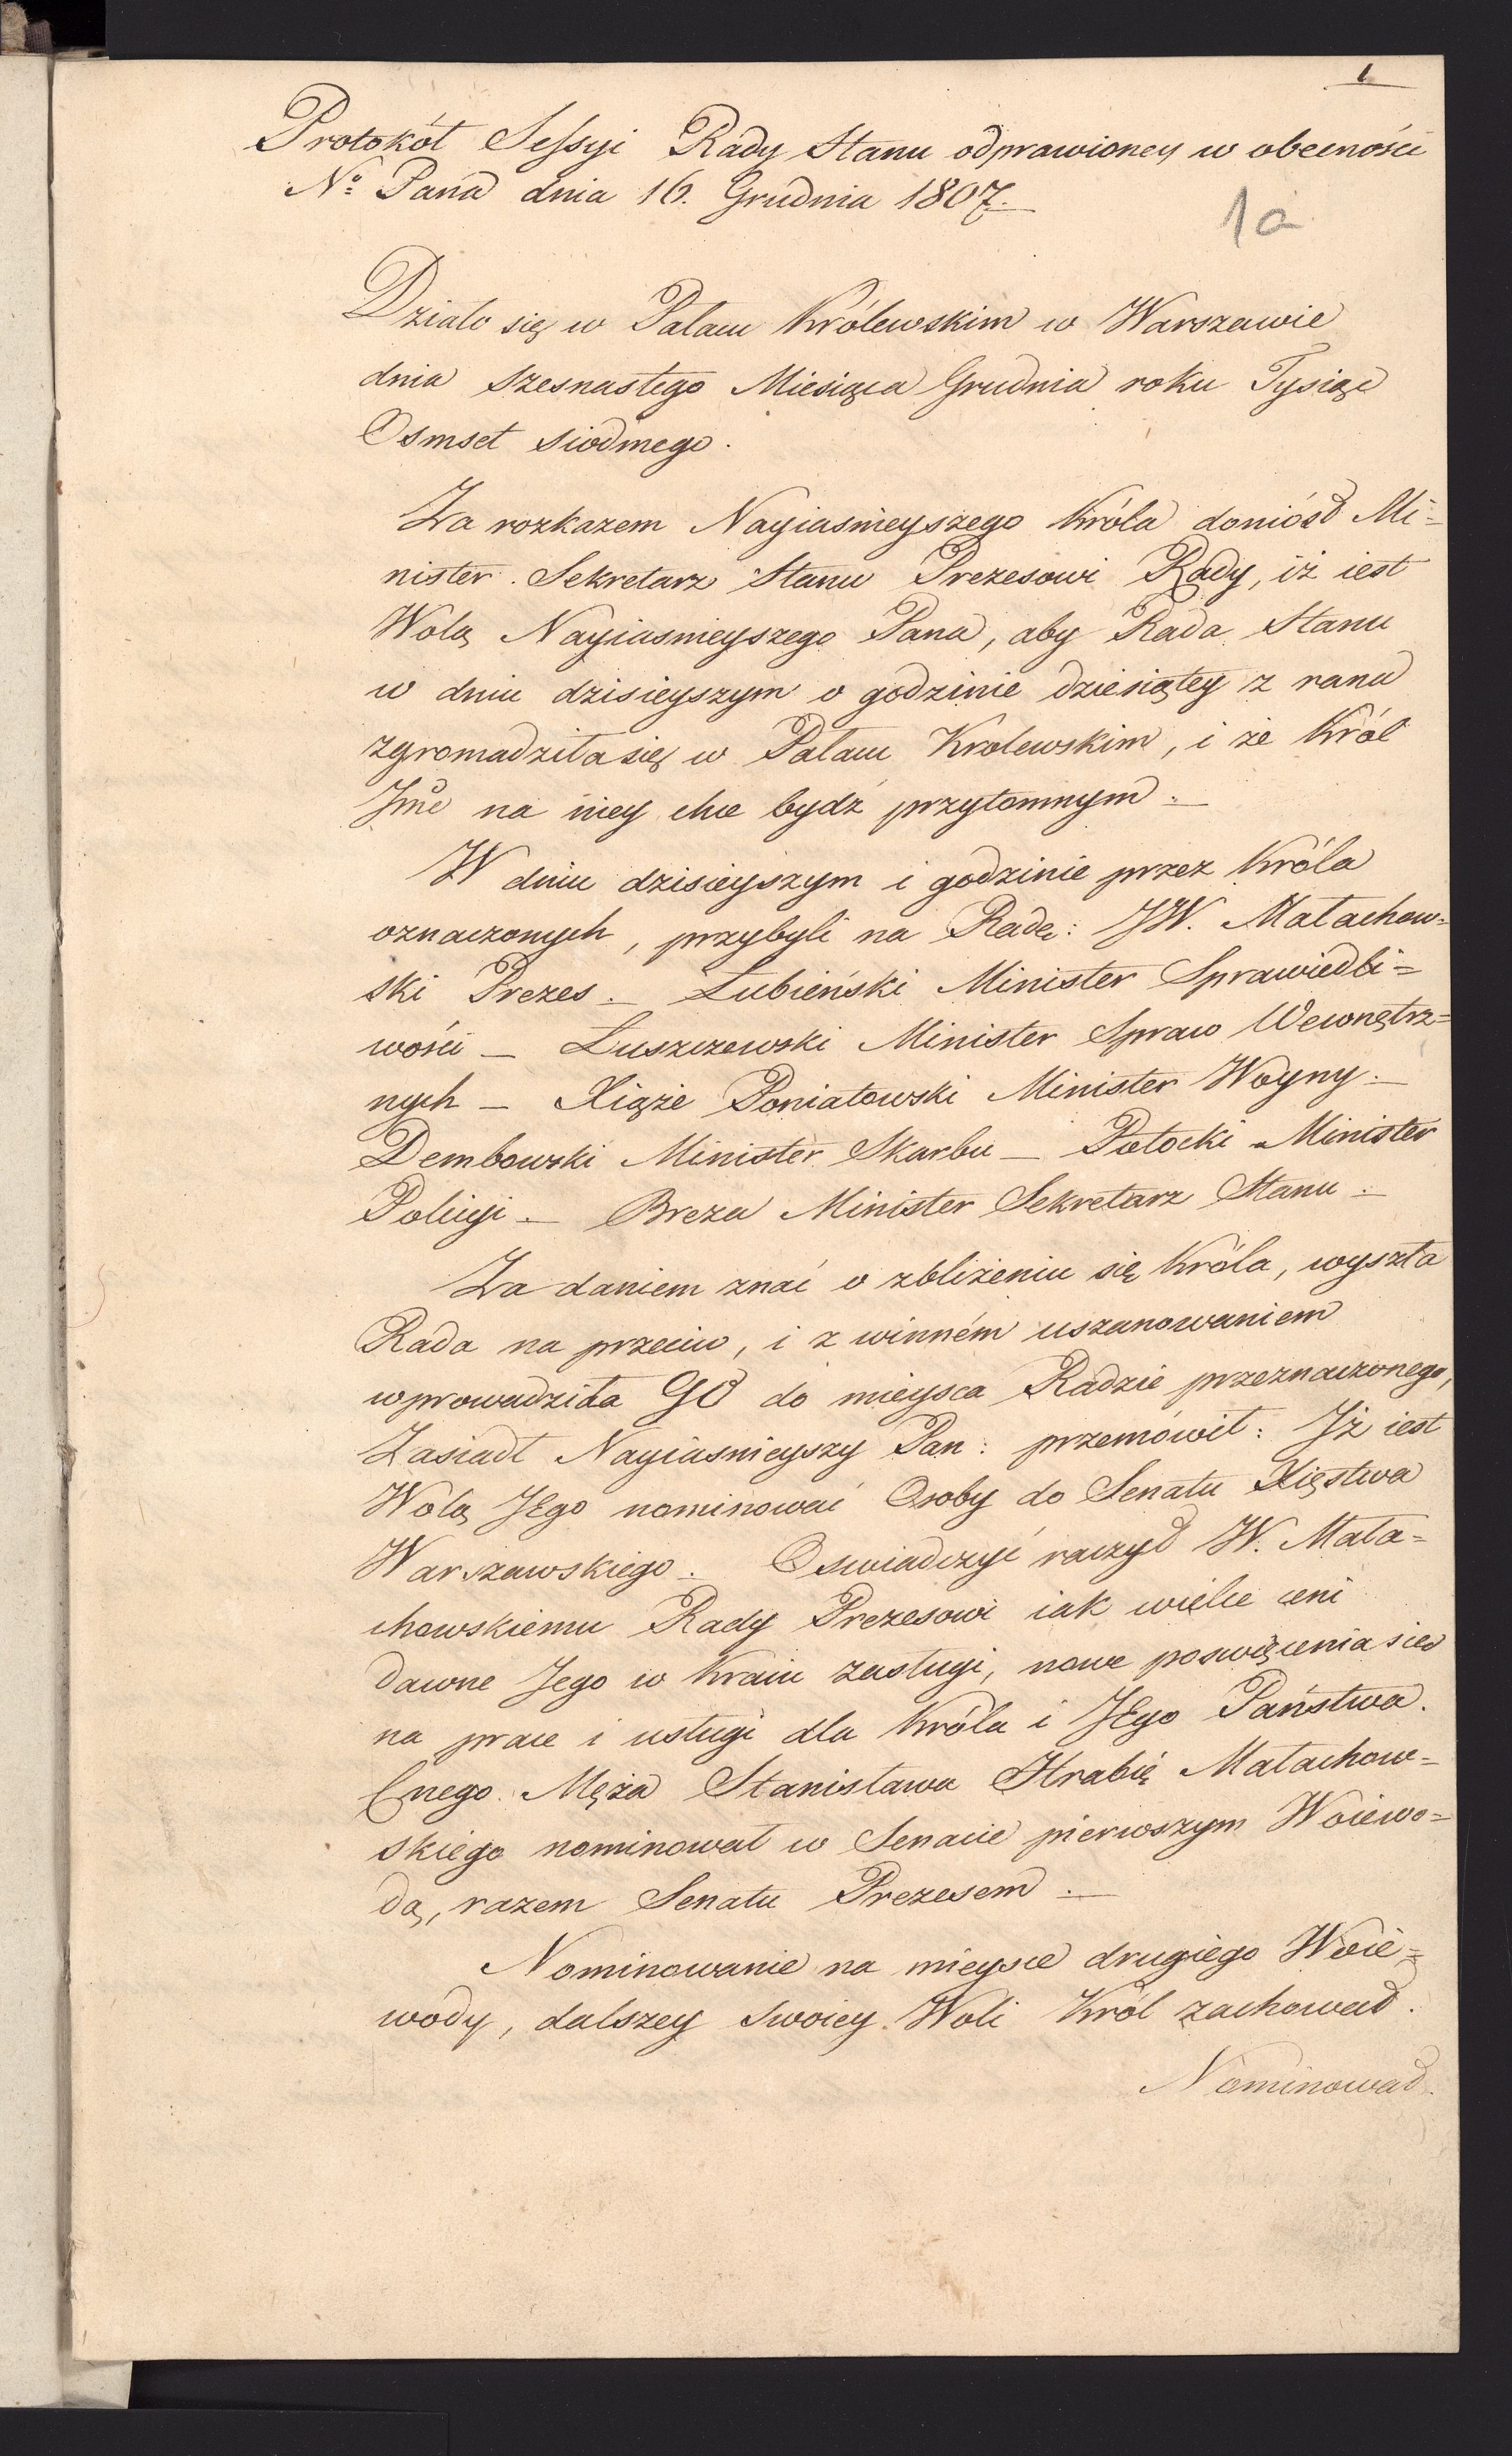 1
Protokół Sessyi Rady Stanu odprawioney w obecności
No Pana dnia 16. Grudnia 1807.
1a
Działo się w Pałacu Królewskim w Warszawie
dnia szesnastego Miesiąca Grudnia roku Tysiąc
Osmset siodmego.
Za rozkazem Nayiasnieyszego Króla doniósł Mi=
nister Sekretarz Stanu Prezesowi Rady, iż iest
Wolą Nayiasnieyszego Pana, aby Rada Stanu
w dniu dzisieyszym o godzinie dziesiątey z rana
zgromadziła się w Pałacu Krolewskim, i że Król
Jmć na niey chce bydź przytomnym.
W dniu dzisieyszym i godzinie przez Króla
oznaczonych, przybyli na Radę: JW. Małachow=
ski Prezes. – Łubieński Minister Sprawiedli=
wości – Łuszczewski Minister Spraw Wewnętrz=
nych – Xiąże Poniatowski Minister Woyny. –
Dembowski Minister Skarbu – Potocki Minister
Policyi. – Breza Minister Sekretarz Stanu.
Za daniem znać o zbliżeniu się Króla, wyszła
Rada na przeciw, i z winném uszanowaniem
wprowadziła GO do mieysca Radzie przeznaczonego,
Zasiadł Nayiasnieyszy Pan: przemówił: Jż iest
Wolą JEgo nominować Osoby do Senatu Xięstwa
Warszawskiego. Oswiadczyć raczył W. Mała=
chowskiemu Rady Prezesowi iak wielce ceni
dawne Jego w Kraiu zasługi, nowe poswięcenia się
na prace i usługi dla Króla i JEgo Państwa.
Cnego Męża Stanisława Hrabię Małachow=
skiego nominował w Senacie pierwszym Woiewo=
dą, razem Senatu Prezesem.
Nominowanie na mieysce drugiego Woie=
wody, dalszey swoiey Woli Król zachował.
Nominował